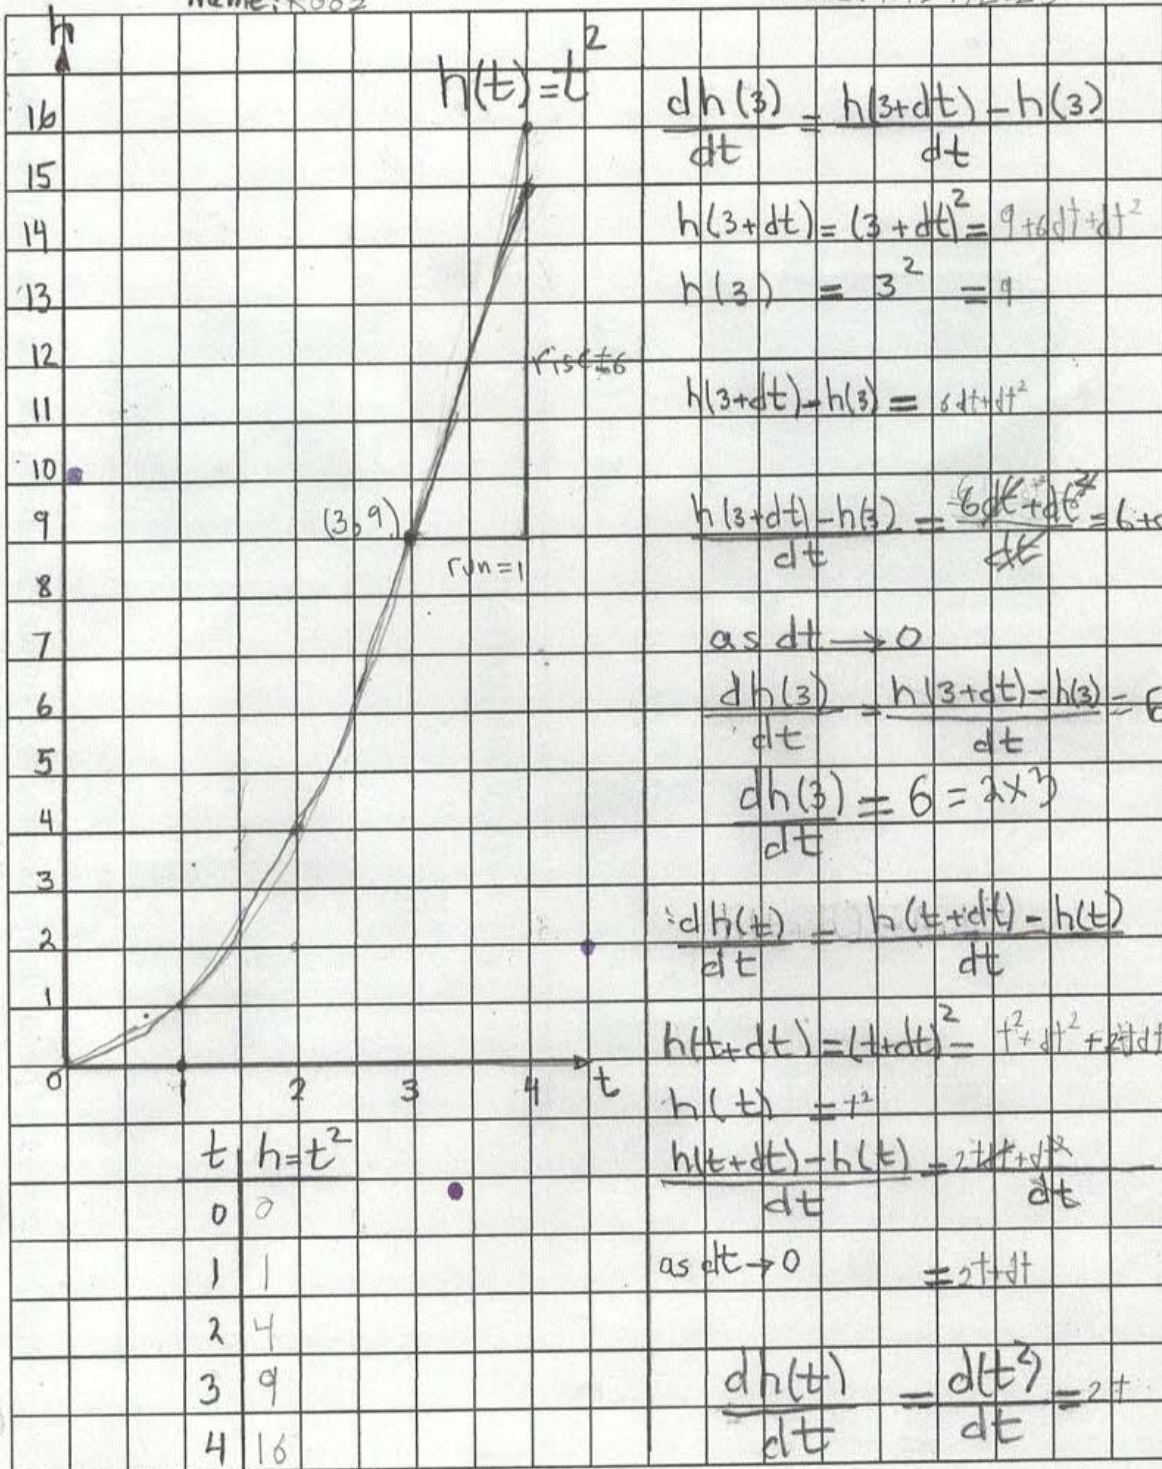 Name:
h
h(t)=t²
16
15
14
13
12
11
10
9
8
7
6
5
4
3
2
1
0
2
3
4
t
(3,9)
rise=6
run=1
t h=t²
0 0
1 1
2 4
3 9
4 16
dh(3)/dt = h(3+dt)-h(3)/dt
h(3+dt)=(3+dt)²=9+6dt+dt²
h(3) = 3² =9
h(3+dt)-h(3) = 6dt+dt²
h(3+dt)-h(3)/dt = 6dt+dt²/dt = 6+
as dt→0
dh(3)/dt = h(3+dt)-h(3)/dt = 6
dh(3)/dt = 6 = 2×3
dh(t)/dt = h(t+dt)-h(t)/dt
h(t+dt)=(t+dt)²= t²+dt²+2tdt
h(t) =t²
h(t+dt)-h(t)/dt = 2tdt+dt²/dt
as dt→0 =2t+dt
dh(t)/dt = d(t²)/dt =2t